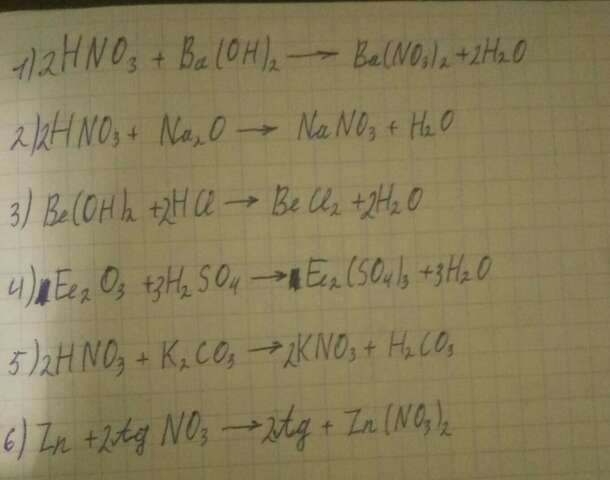 1) 2HNO₃ + Ba(OH)₂ → Ba(NO₃)₂ + 2H₂O
2) 2HNO₃ + Na₂O → NaNO₃ + H₂O
3) Be(OH)₂ + 2HCl → BeCl₂ + 2H₂O
4) Fe₂O₃ + 3H₂SO₄ → Fe₂(SO₄)₃ + 3H₂O
5) 2HNO₃ + K₂CO₃ → 2KNO₃ + H₂CO₃
6) Zn + 2AgNO₃ → 2Ag + Zn(NO₃)₂